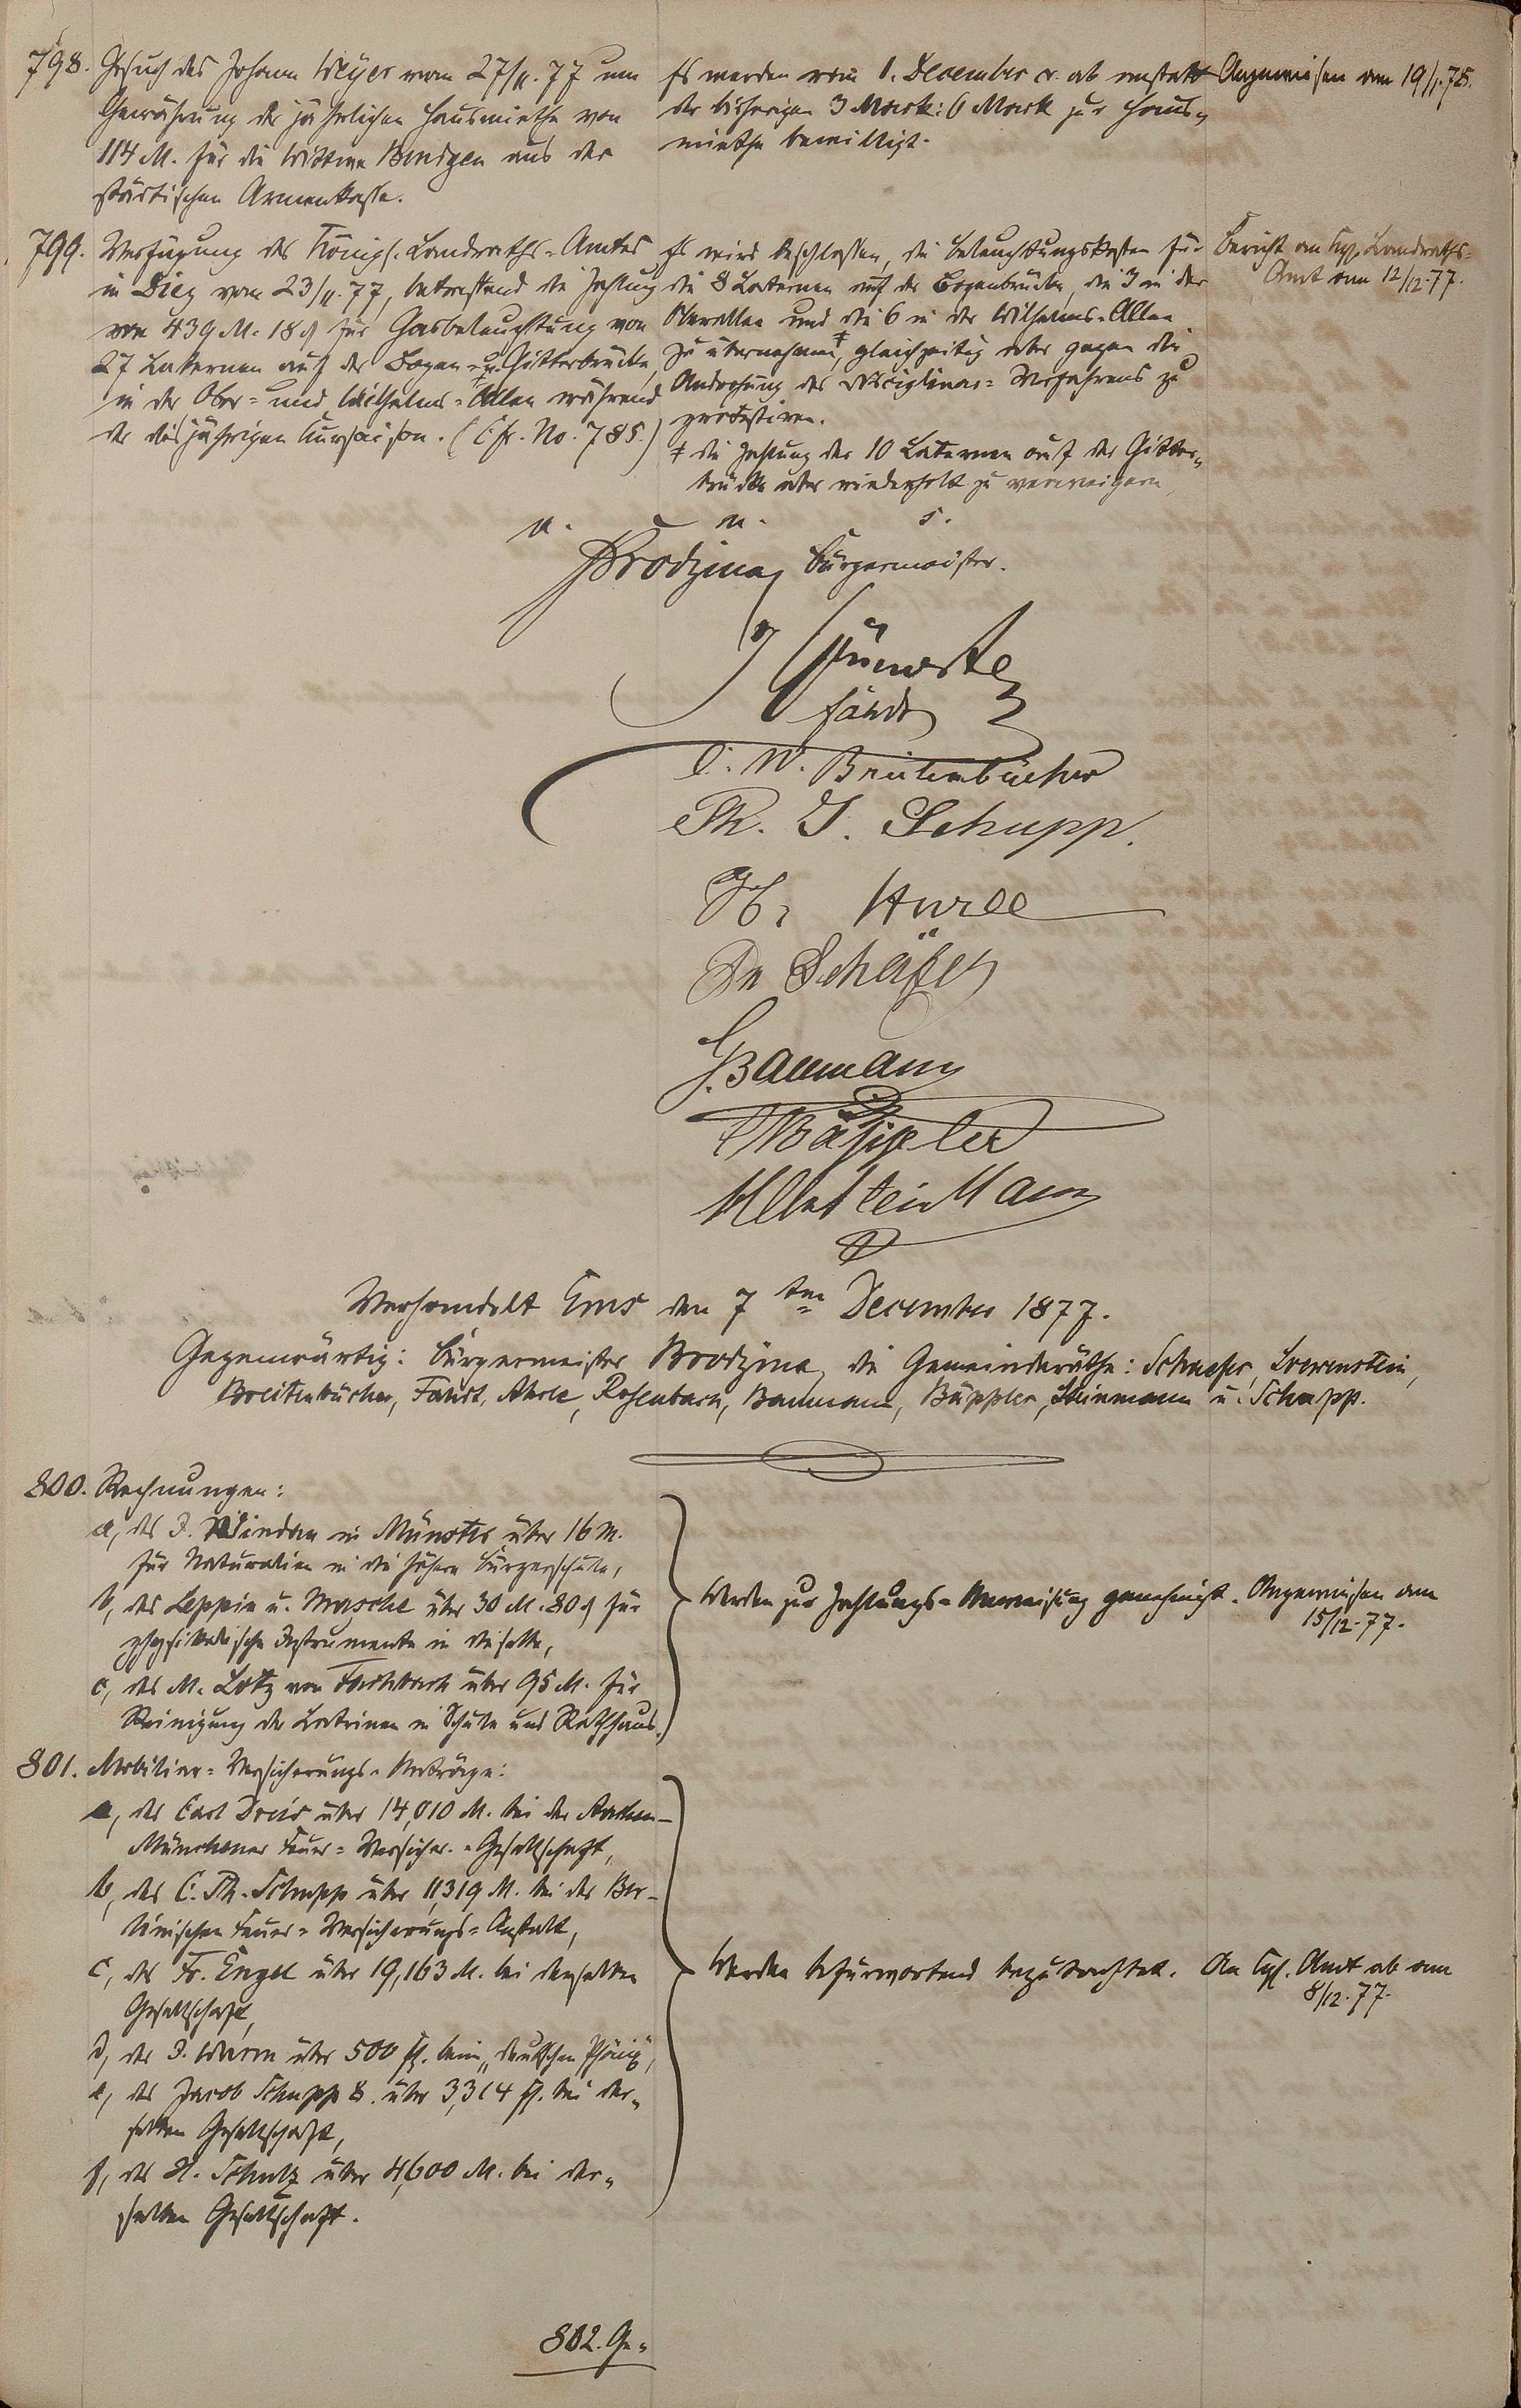 798. Gesuch des Johann Weyer vom 27/11.77 um
Gewährung der jährlichen Hausmiethe von
114 M. für die Wittwe Bindgen aus der
städtischen Armenkasse.
Es werden vom 1. December cr. ab anstatt
der bisherigen 3 Mark: 6 Mark zur Haus-
miethe bewilligt.
Angewiesen am 19/1.78.
799. Verfügung des Königl. Landraths-Amtes
in Diez vom 23/11.77, betreffend die Zahlung
von 439 M. 18 ₰ für Gasbeleuchtung von
27 Laternen auf der Bogen- u. Gitterbrücke,
in der Ober- und Wilhelms-Allee während
der diesjährigen Kursaison. (Cfr. No. 785.)
Es wird beschlossen, die Beleuchtungskosten für
die 8 Laternen auf der Bogenbrücke, die 3 in der
Oberallee und die 6 in der Wilhelms-Allee
zu übernehmen, ‡ gleichzeitig aber gegen die
Androhung des Disciplinar-Verfahrens zu
protestiren.
‡ die Zahlung der 10 Laternen auf der Gitter-
brücke aber wiederholt zu verweigern,
Bericht an Kgl. Landraths-
Amt am 12/12.77.
v. m. s.
Brodzina, Bürgermeister.
Fahdt
C. W. Breitenbücher
Ph. J. Schupp.
Dr Schäfer
G. Baumann
Bäppler
Verhandelt Ems den 7ten December 1877.
Gegenwärtig: Bürgermeister Brodzina, die Gemeinderäthe: Schaefer, Loewenstein,
Breitenbücher, Fahdt, Ahrle, Rosenbach, Baumann, Bäppler, Steinmann u. Schupp.
800. Rechnungen:
a, des J. Windau in Münster über 16 M.
für Naturalien in die höhere Bürgerschule,
b, der Leppin u. Masche über 30 M. 80 ₰ für
physikalische Instrumente in dieselbe,
c, des M. Lotz von Fachbach über 95 M. für
Reinigung der Latrinen in Schule und Rathhaus.
Werden zur Zahlungs-Anweisung genehmigt.
Angewiesen am
15/12.77.
801. Mobiliar-Versicherungs-Anträge:
a, des Carl Dreis über 14,010 M. bei der Aachen-
Münchener Feuer-Versicher.-Gesellschaft,
b, des C. Th. Schupp über 11,319 M. bei der Ber-
linischen Feuer-Versicherungs-Anstalt,
c, des Fr. Engel über 19,163 M. bei derselben
Gesellschaft,
d, des J. Wurm über 500 fl. beim "deutschen Phönix",
e, des Jacob Schupp 8. über 3,314 fl. bei der-
selben Gesellschaft,
f, des H. Schulz über 4,600 M. bei der-
selben Gesellschaft.
Werden befürwortend begutachtet.
An Kgl. Amt ab am
8/12.77.
802. Ge-